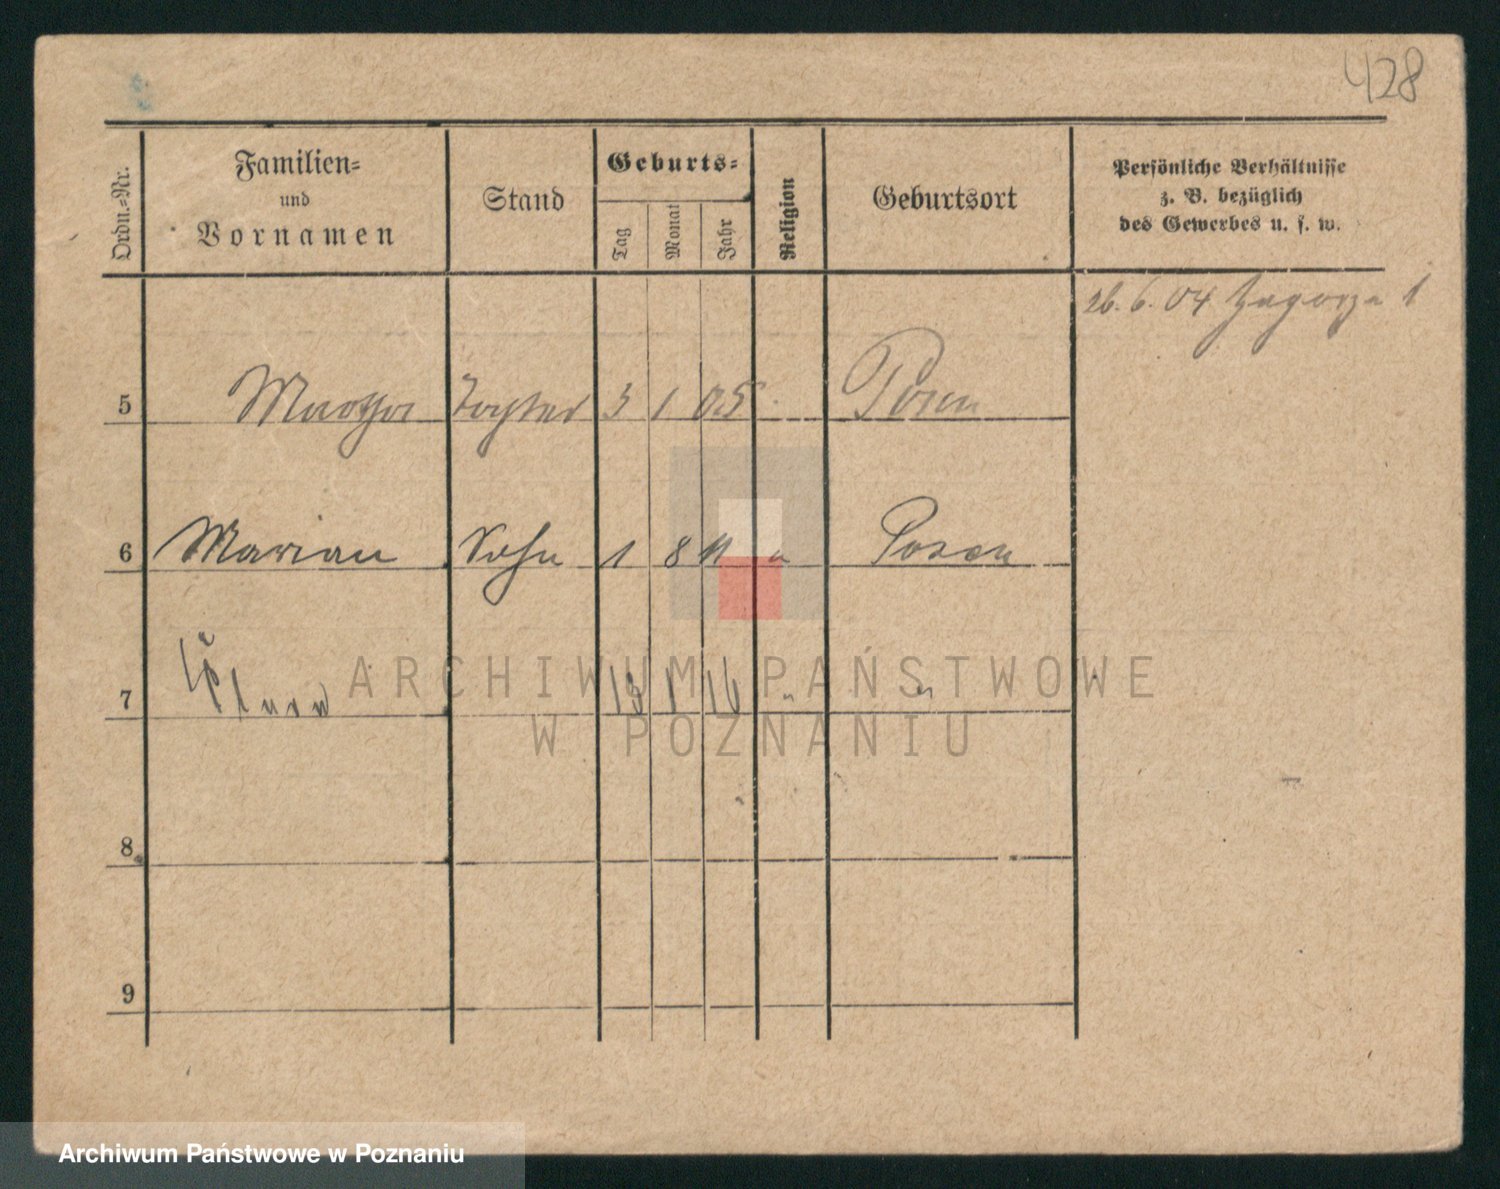 428
Ordn.-Nr.
Familien-
und
Vornamen
Stand
Geburts-
Tag
Monat
Jahr
Religion
Geburtsort
Persönliche Verhältnisse
z. B. bezüglich
des Gewerbes u. s. w.
26. 6. 04 Zagorze 1
5 Martha Tochter 3 1 05 Posen
6 Marian Sohn 1 8 11 " Posen
7 13 1 16 " "
8
9
ARCHIWUM PAŃSTWOWE
W POZNANIU
Archiwum Państwowe w Poznaniu